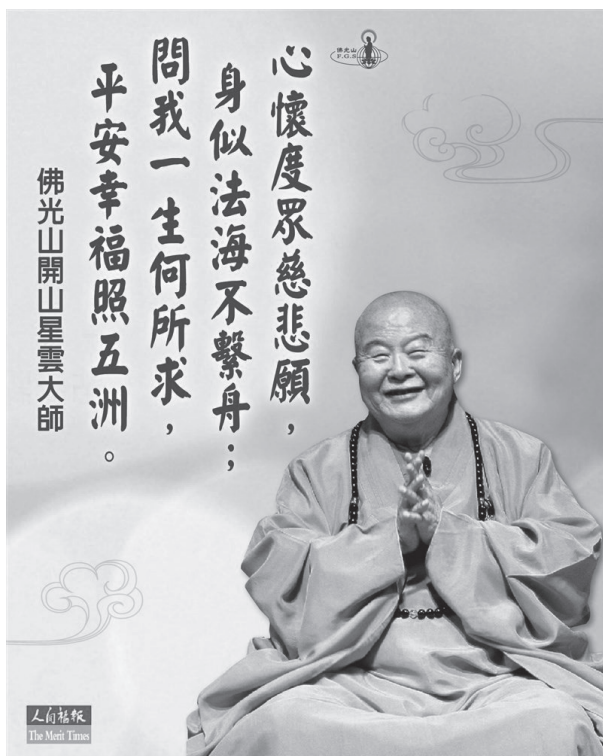 佛光山
F.G.S
心懷度眾慈悲願，
身似法海不繫舟；
問我一生何所求，
平安幸福照五洲。
佛光山開山星雲大師
人間福報
The Merit Times